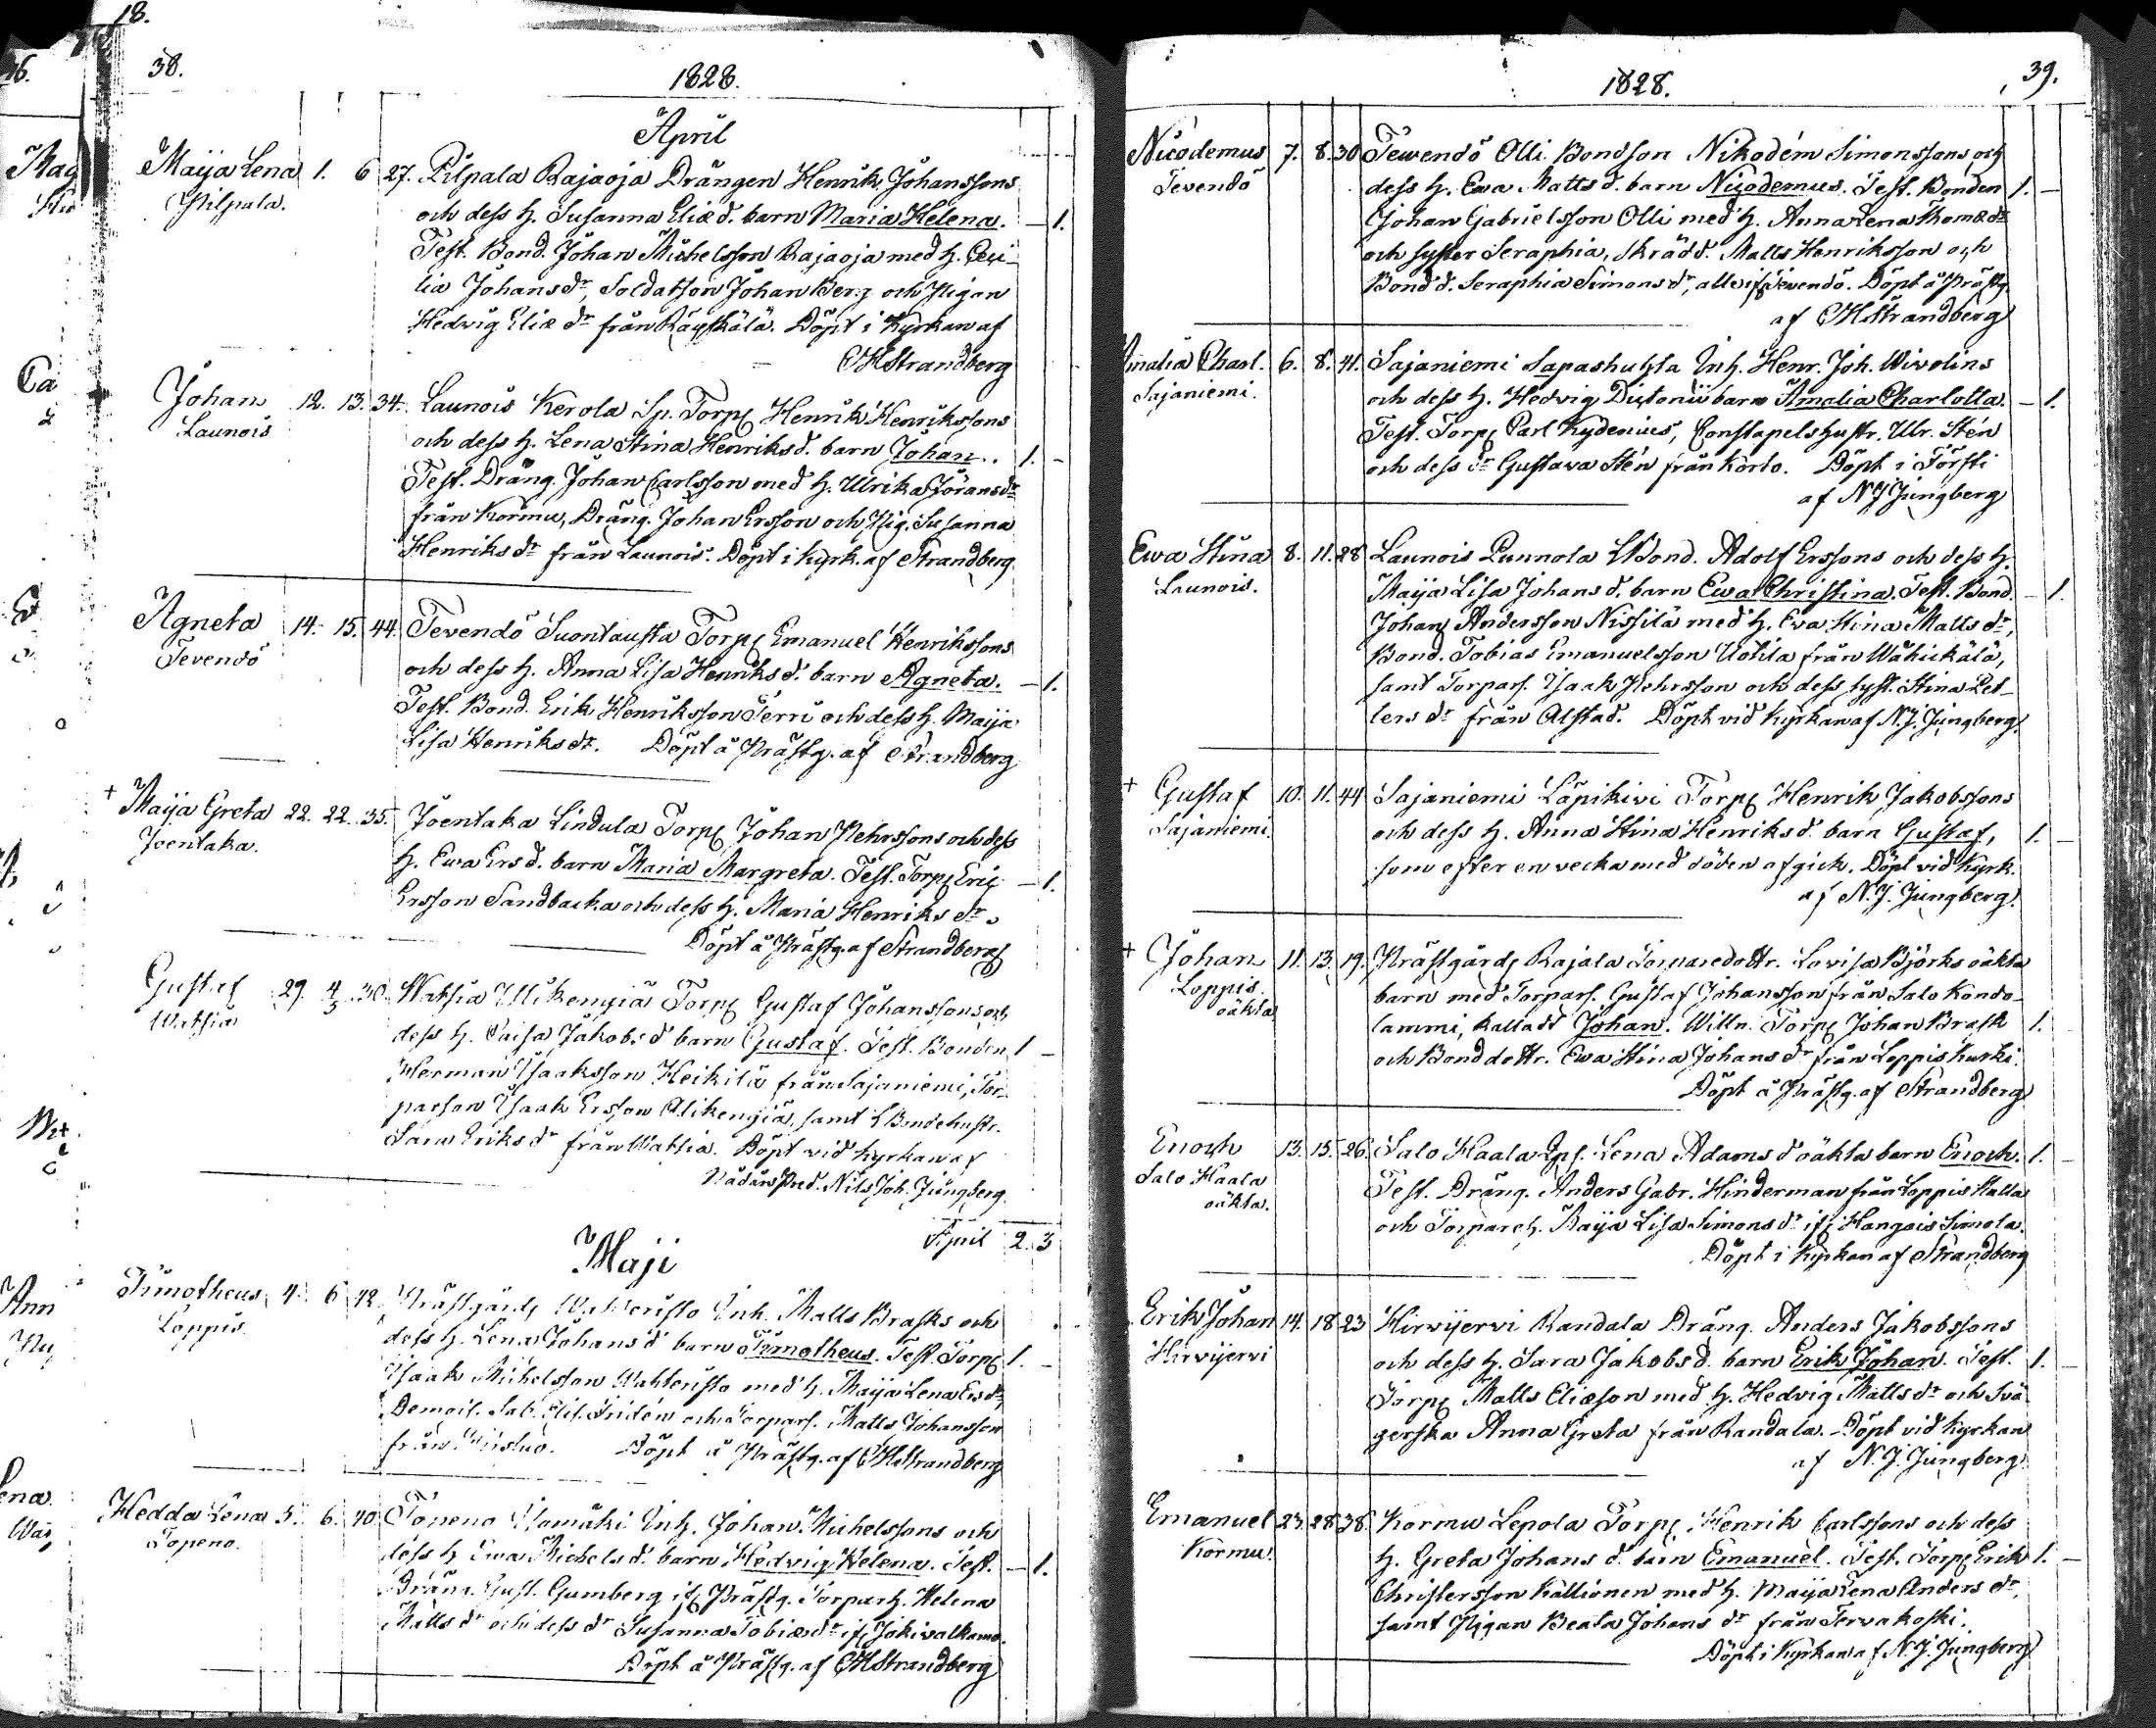 18.
38.
1828.
April
Maija Lena 1. 6 27. Pilpala Rajaoja Drängen Henrik Johanssons
Pilpala. och dess h. Susanna Eliæ d. barn Maria Helena. — 1.
Test. Bond. Johan Michelsson Rajaoja med h. Ceci-
lia Johans dr, Soldatson Johan Berg och Pigan
Hedvig Eliæ dr från Räyskälä. Döpt i Kyrkan af
CHStrandberg
Johan 12. 13. 34. Launois Kerola Sp. Torp. Henrik Henrikssons
Launois och dess h. Lena Stina Henriks d. barn Johan. 1. –
Test. Dräng. Johan Carlsson med h. Ulrika Görans dr
från Kormu, Dräng. Johan Ersson och Pig. Susanna
Henriks dr från Launois. Döpt i Kyrk. af Strandberg.
Agneta 14. 15. 44. Tevendö Suontausta Torp. Emanuel Henrikssons
Tevendö och dess h. Anna Lisa Henriks d. barn Agneta. — 1.
Test. Bond. Erik Henriksson Terri och dess h. Maija
Lisa Henriks dr. Döpt å Prästg. af Strandberg
+ Maija Greta 22. 22. 35. Joentaka Lindula Torp. Johan Pehrssons och dess
Joentaka. h. Ewa Ers d. barn Maria Margreta. Test. Torp. Eric — 1.
Ersson Sandbacka och dess h. Maria Henriks dr.
Döpt å Prästg. af Strandberg
Gustaf 29. 4/5 30. Watsia Ylikengiä Torp. Gustaf Johanssons och
Watsia dess h. Caisa Jakobs d barn Gustaf. Test. Bonden 1 –
Herman Isaaksson Heikilä från Sajaniemi, Tor-
parson Isaak Ersson Alikengiä, samt LBondehustr.
Sara Eriks dr från Watsia. Döpt vid Kyrkan af
Nådårs Pred. Nils Joh. Jungberg.
April 2. 3
Maji
Timotheus 4. 6 42. Prästgårds Wahteristo Inh. Matts Brasks och
Loppis. dess h. Lena Johans d barn Timotheus. Test. Torp. 1. –
Isaak Michelsson Wahteristo med h. Maija Lena Ers dr,
Demoil. Sab. Elis. Fridén och Torpars. Matts Johansson
från Döpt å Prästg. af CHStrandberg
Hedda Lena 5. 6. 40. Topeno Inh. Johan Michelssons och
Topeno. dess h Ewa Michels d. barn Hedvig Helena. Test. — 1.
Dräng. Gust. Gumberg if. Prästg. Torparh. Helena
Matts dr och dess dr Susanna Tobiæ dr if. Jokivalkama.
Döpt å Prästg. af CHStrandberg
39.
1828.
Nicodemus 7. 8. 30 Tewendö Olli Bondson Nikodém Simonssons och
Tevendö dess h. Ewa Matts d. barn Nicodemus. Test. Bonden 1. –
Johan Gabrielsson Olli med h. Anna Lena Thomæ dr
och syster Seraphia, Skrädd. Matts Henriksson och
Bond d. Seraphia Simons dr, alle if. Tevendö. Döpt å Prästg.
af CHStrandberg
Amalia Charl. 6. 8. 41. Sajaniemi Sapashuhta Inh. Henr. Joh. Wivolins
Sajaniemi. och dess h. Hedvig barn Amalia Charlotta. — 1.
Test. Torp. Carl Kydenius, Constapelshustr. Ulr. Stén
och dess dr Gustava Stén från Korto. Döpt i Törsti
af NJJungberg
Ewa Stina 8. 11. 28 Launois Punnola LBond. Adolf Erssons och dess h.
Launois. Maija Lisa Johans d. barn Ewa Christina. Test. Bond. — 1.
Johan Andersson Nissilä med h. Eva Stina Matts dr,
Bond. Tobias Emanuelsson Uotila från Wähickälä,
samt Torpars. Isaak Pehrsson och dess syst. Stina Pet-
ters dr från Alstad. Döpt vid Kyrkan af N.J. Jungberg.
+ Gustaf 10. 11. 44 Sajaniemi Läpikivi Torp. Henrik Jakobssons
Sajaniemi och dess h. Anna Stina Henriks d. barn Gustaf, 1. –
som efter en vecka med döden afgick. Döpt vid Kyrk.
af N.J. Jungberg.
+ Johan 11. 13. 19. Prästgårds Rajala Torparedottr. Lovisa Björks oäkta
Loppis. barn med Torpars. Gustaf Johansson från Salo Kondo-
oäkta lammi, kalladt Johan. Wittn. Torp. Johan Brask 1. –
och Bonddottr. Ewa Stina Johans dr från Loppis Kurki.
Döpt å Prästg. af Strandberg
Enoch 13. 15. 26. Salo Haala Lena Adams d oäkta barn Enoch. 1. –
Salo Haala Test. Dräng. Anders Gabr. Hinderman från Loppis
oäkta. och Torpareh. Maija Lisa Simons dr if. Hangais Simola.
Döpt i Kyrkan af Strandberg
Erik Johan 14. 18 23 Hirvijervi Randala Dräng. Anders Jakobssons
Hirvijervi och dess h. Sara Jakobs d. barn Erik Johan. Test. 1. –
Torp. Matts Eliæson med h. Hedvig Matts dr och Svä-
gerska Anna Greta från Randala. Döpt vid Kyrkan
af N.J. Jungberg
Emanuel 23. 28. 38. Kormu Lepola Torp. Henrik Carlssons och dess
Kormu. h. Greta Johans d. barn Emanuel. Test. Torp. Erik 1. –
Christersson Kallionen med h. Maija Lena Anders dr,
samt Pigan Beata Johans dr från Tervakoski.
Döpt i Kyrkan af N.J. Jungberg